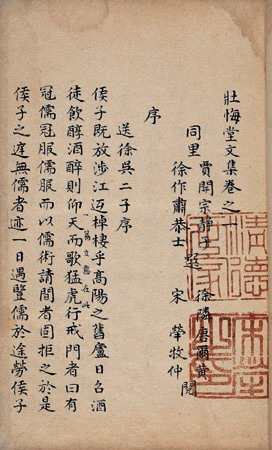 壯悔堂文集卷之一
賈開宗靜子
同里
徐作肅恭士
選
徐隣唐爾黄
宋犖牧仲
閱
序
送徐吳二子序
矦子既放涉江返棹棲乎高陽之舊廬日召酒
徒飲醇酒醉則仰天而歌猛虎行戒門者曰有
立意在此
冠儒冠服儒服而以儒術請間者固拒之於是
矦子之庭無儒者迹一日遇豎儒於途勞矦子